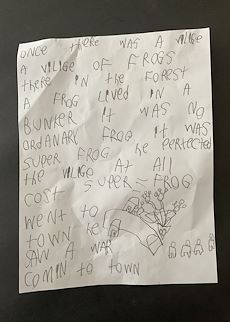 ONCE there WAS A vilige
A vilige OF FROGS
there iN the FOREST
A FROG LIVED iN A
BUNKER it WAS NO
ORDANARY FROG it WAS
SUPER FROG he PERFECTED
the vilige AT All
COST SUPER-FROG
WENT to
tOWN he
SAW A WAR
COMIN to TOWN